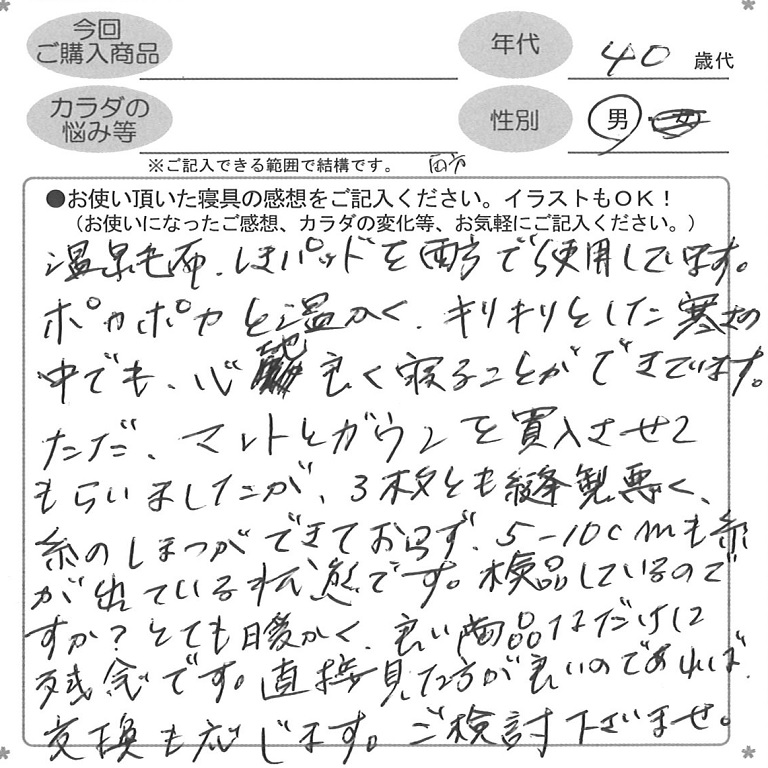 今回
ご購入商品
年代
40 歳代
カラダの
悩み等
性別
男・女
※ご記入できる範囲で結構です。
両方
●お使い頂いた寝具の感想をご記入ください。イラストもOK!
(お使いになったご感想、カラダの変化等、お気軽にご記入ください。)
温泉毛布、しきパッドを両方で使用しています。
ポカポカと温かく、キリキリとした寒さの
中でも、心地良く寝ることができています。
ただ、マットとガウンを買入させて
もらいましたが、3枚とも縫製悪く、
糸のしまつができておらず、5-10cmも糸
が出ている状態です。検品しているので
すか?とても暖かく、良い商品なだけに
残念です。直接見た方が良いのであれば
交換も応じます。ご検討下さいませ。